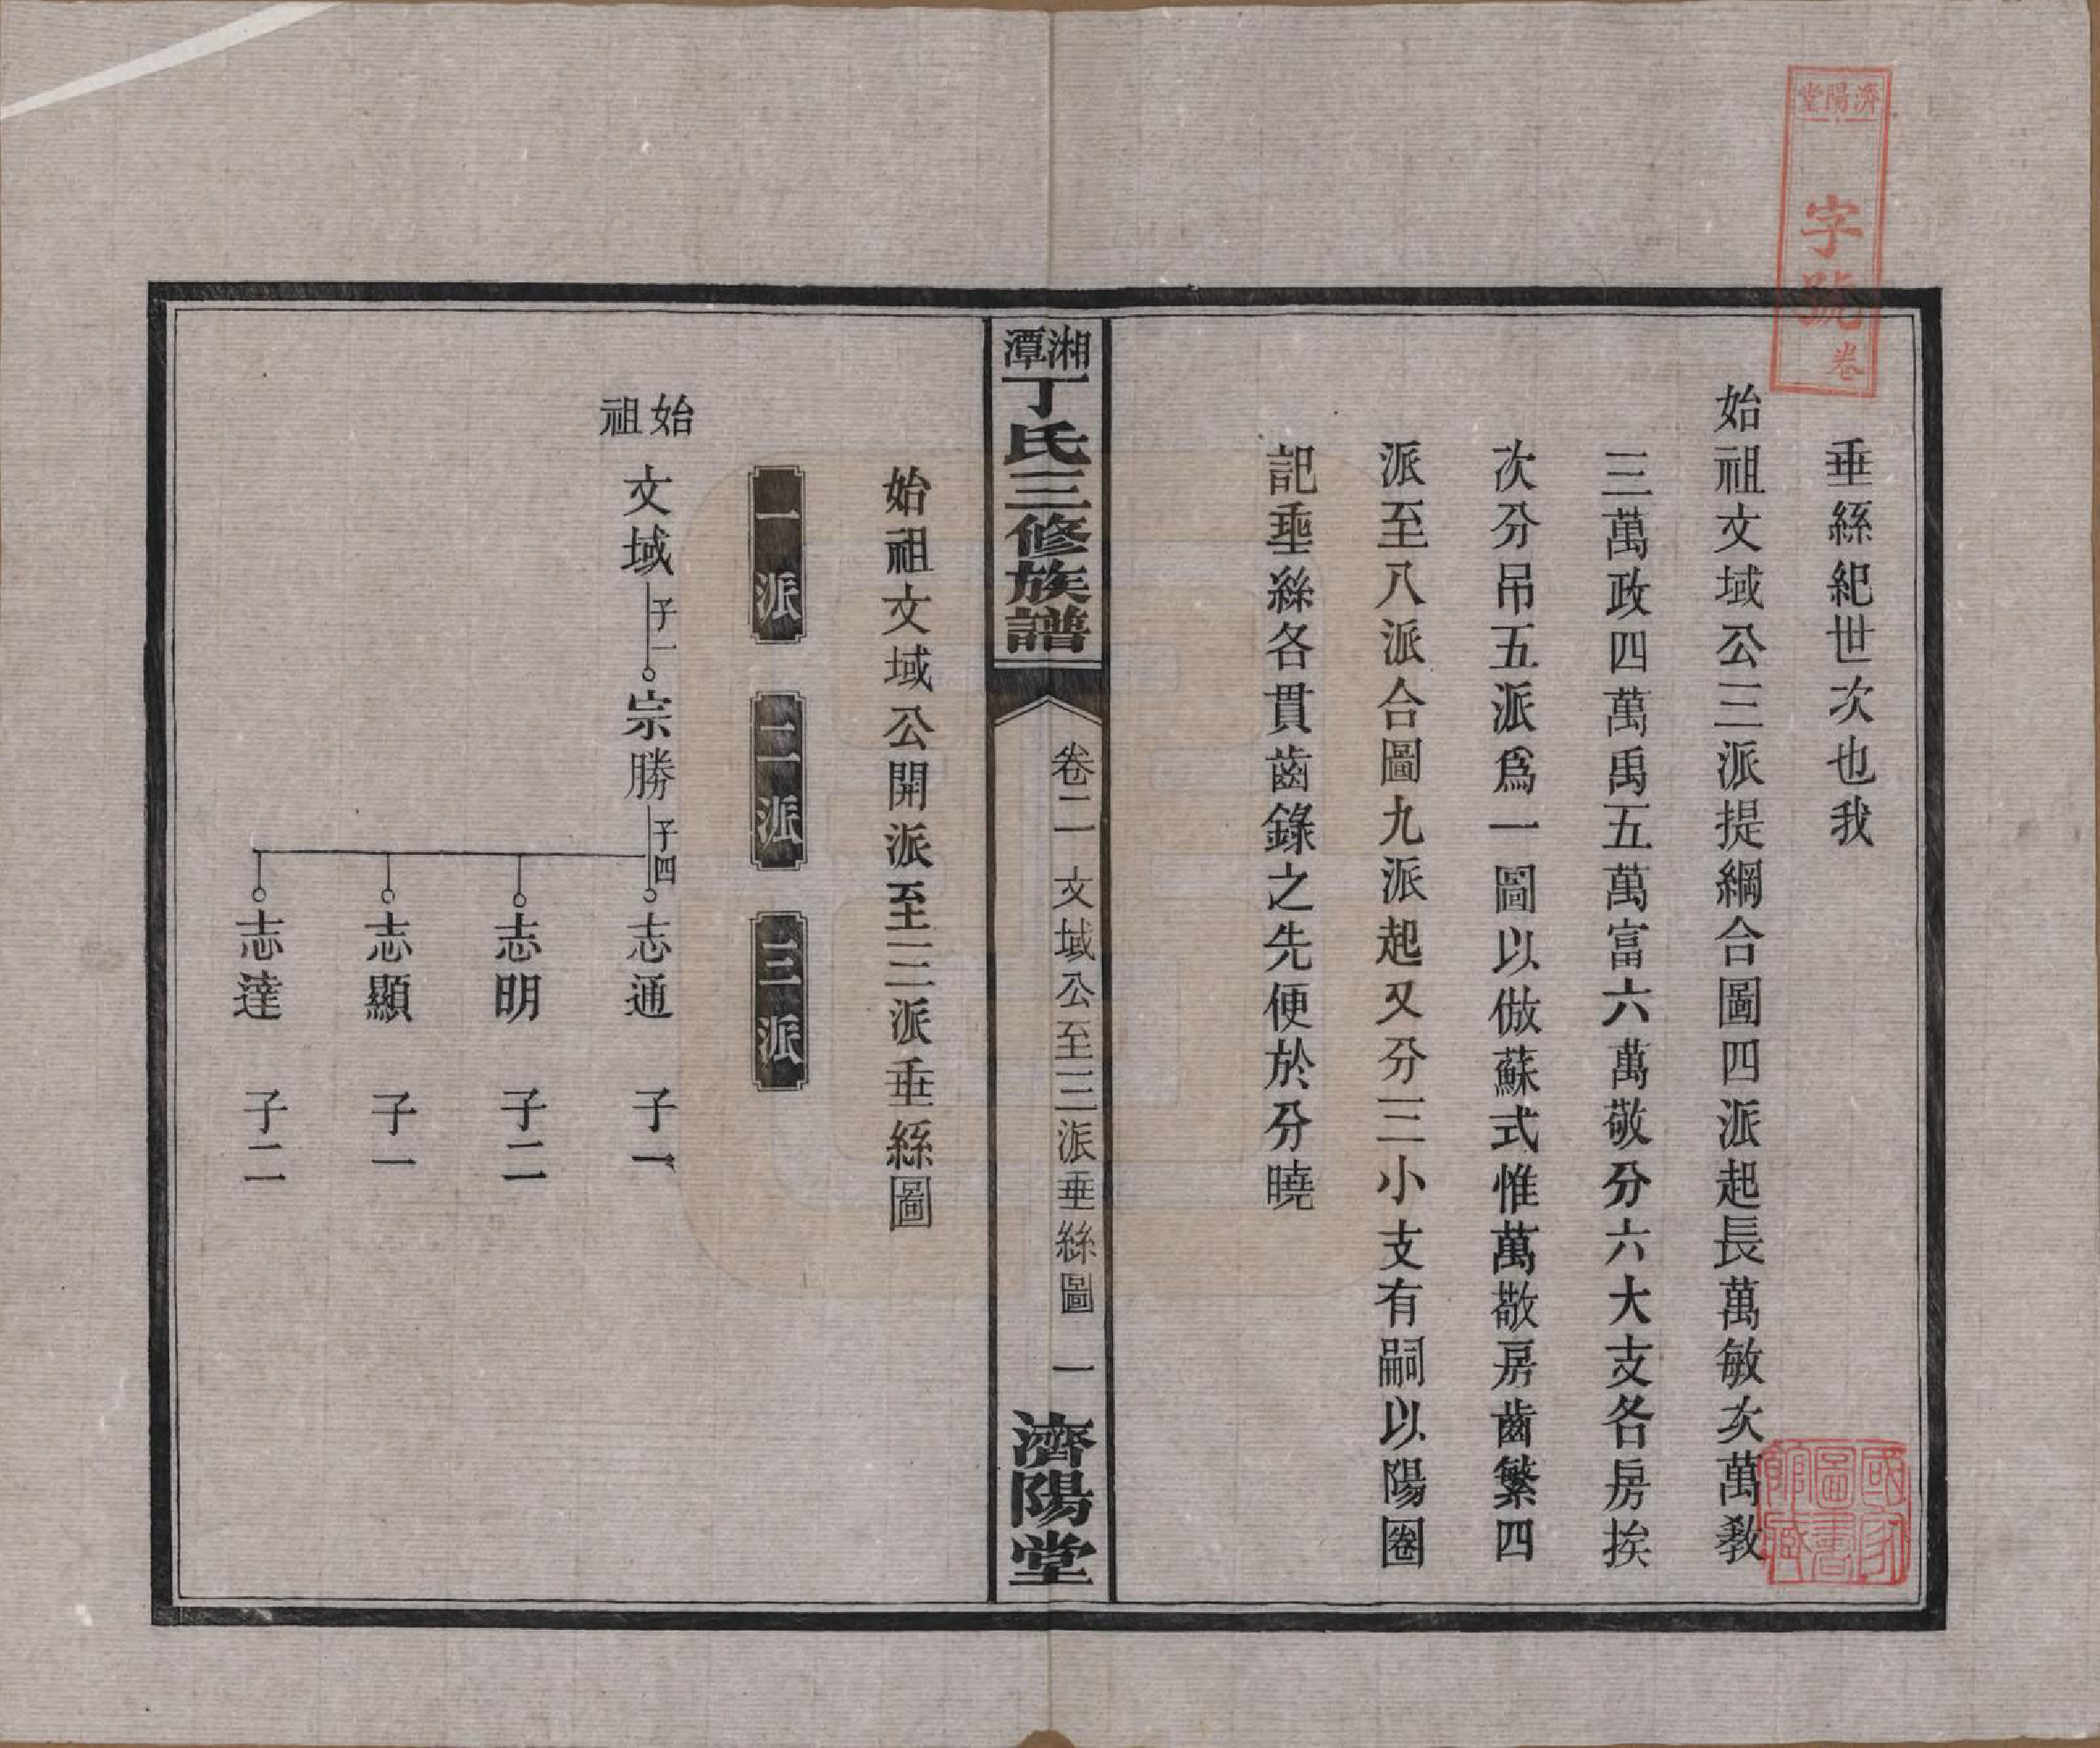 濟陽堂
字號
卷
垂絲紀世次也我
始祖文域公三派提綱合圖四派起長萬敏次萬教
三萬政四萬禹五萬富六萬敬分六大支各房挨
次分吊五派爲一圖以倣蘇式惟萬敬房齒繁四
派至八派合圖九派起又分三小支有嗣以陽圈
記垂絲各貫齒錄之先便於分曉
國家圖書館藏
湘潭丁氏三修族譜
卷二 文域公至三派垂絲圖 一
濟陽堂
始祖文域公開派至三派垂絲圖
一派 二派 三派
始祖
文域 子一 宗勝 子四 志通 子一
志明 子二
志顯 子一
志達 子二